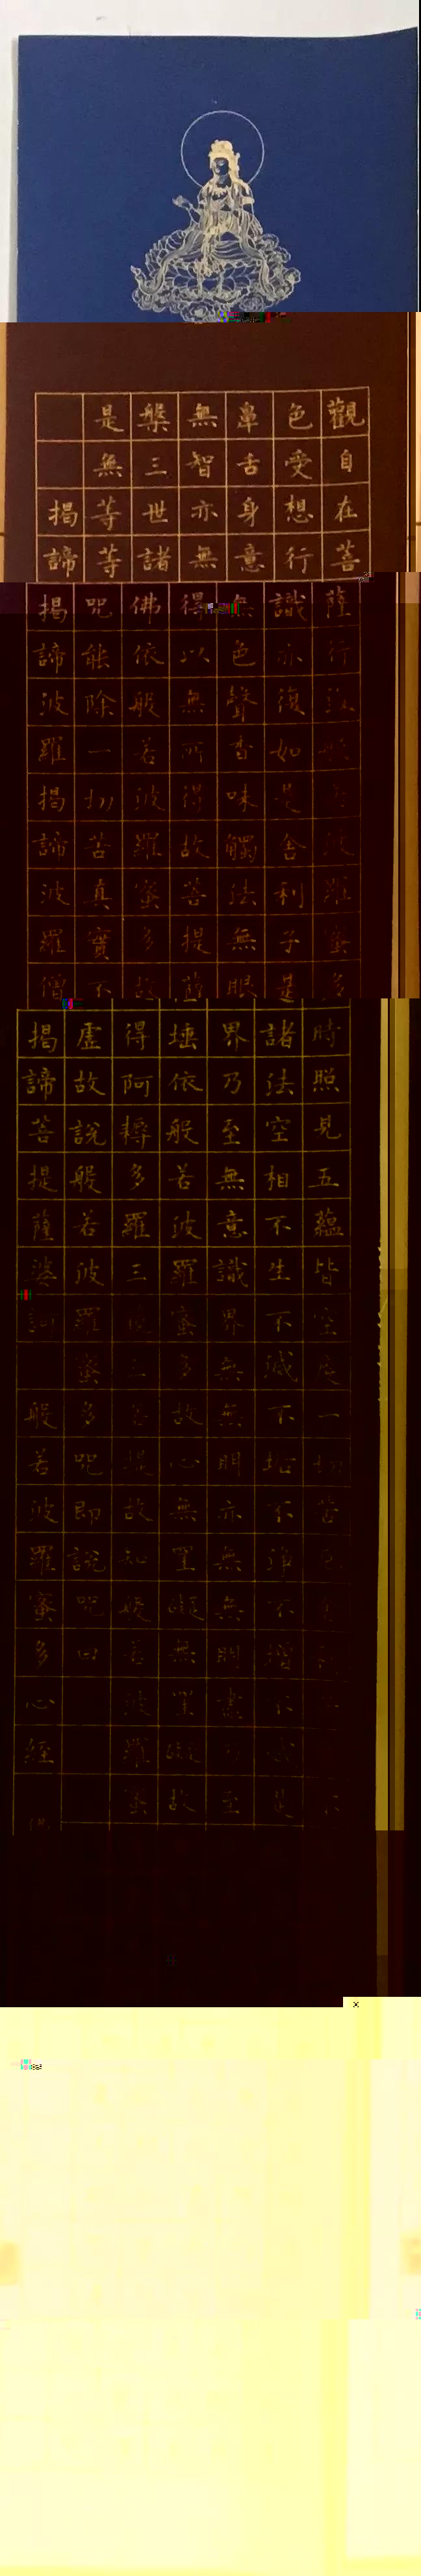 觀自在菩薩行深般若波羅蜜多時照見五蘊皆空度一切苦厄
色受想行識亦復如是舍利子是諸法空相不生不滅不垢不淨不增不減是
鼻舌身意無色聲香味觸法無眼界乃至無意識界無無明亦無無明盡乃至
無智亦無得以無所得故菩提薩埵依般若波羅蜜多故心無罣礙無罣礙故
槃三世諸佛依般若波羅蜜多故得阿耨多羅三藐三菩提故知般若波羅蜜
是無等等咒能除一切苦真實不虛故說般若波羅蜜多咒即說咒曰
揭諦揭諦波羅揭諦波羅僧揭諦菩提薩婆訶
般若波羅蜜多心經